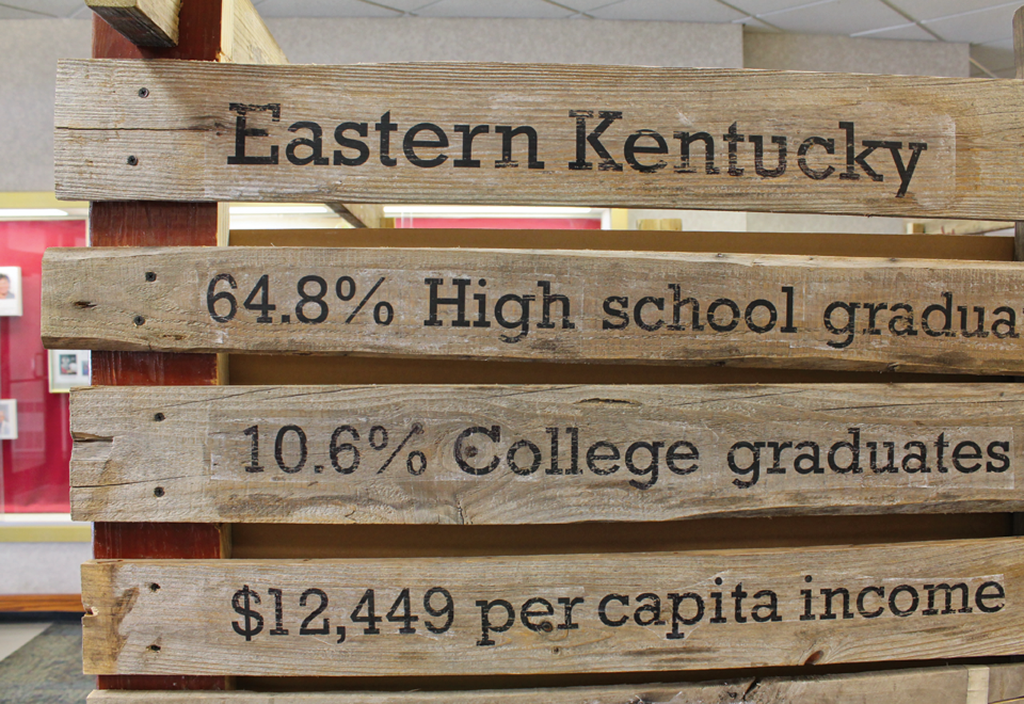 Eastern Kentucky
64.8% High school gradua
10.6% College graduates
$12,449 per capita income